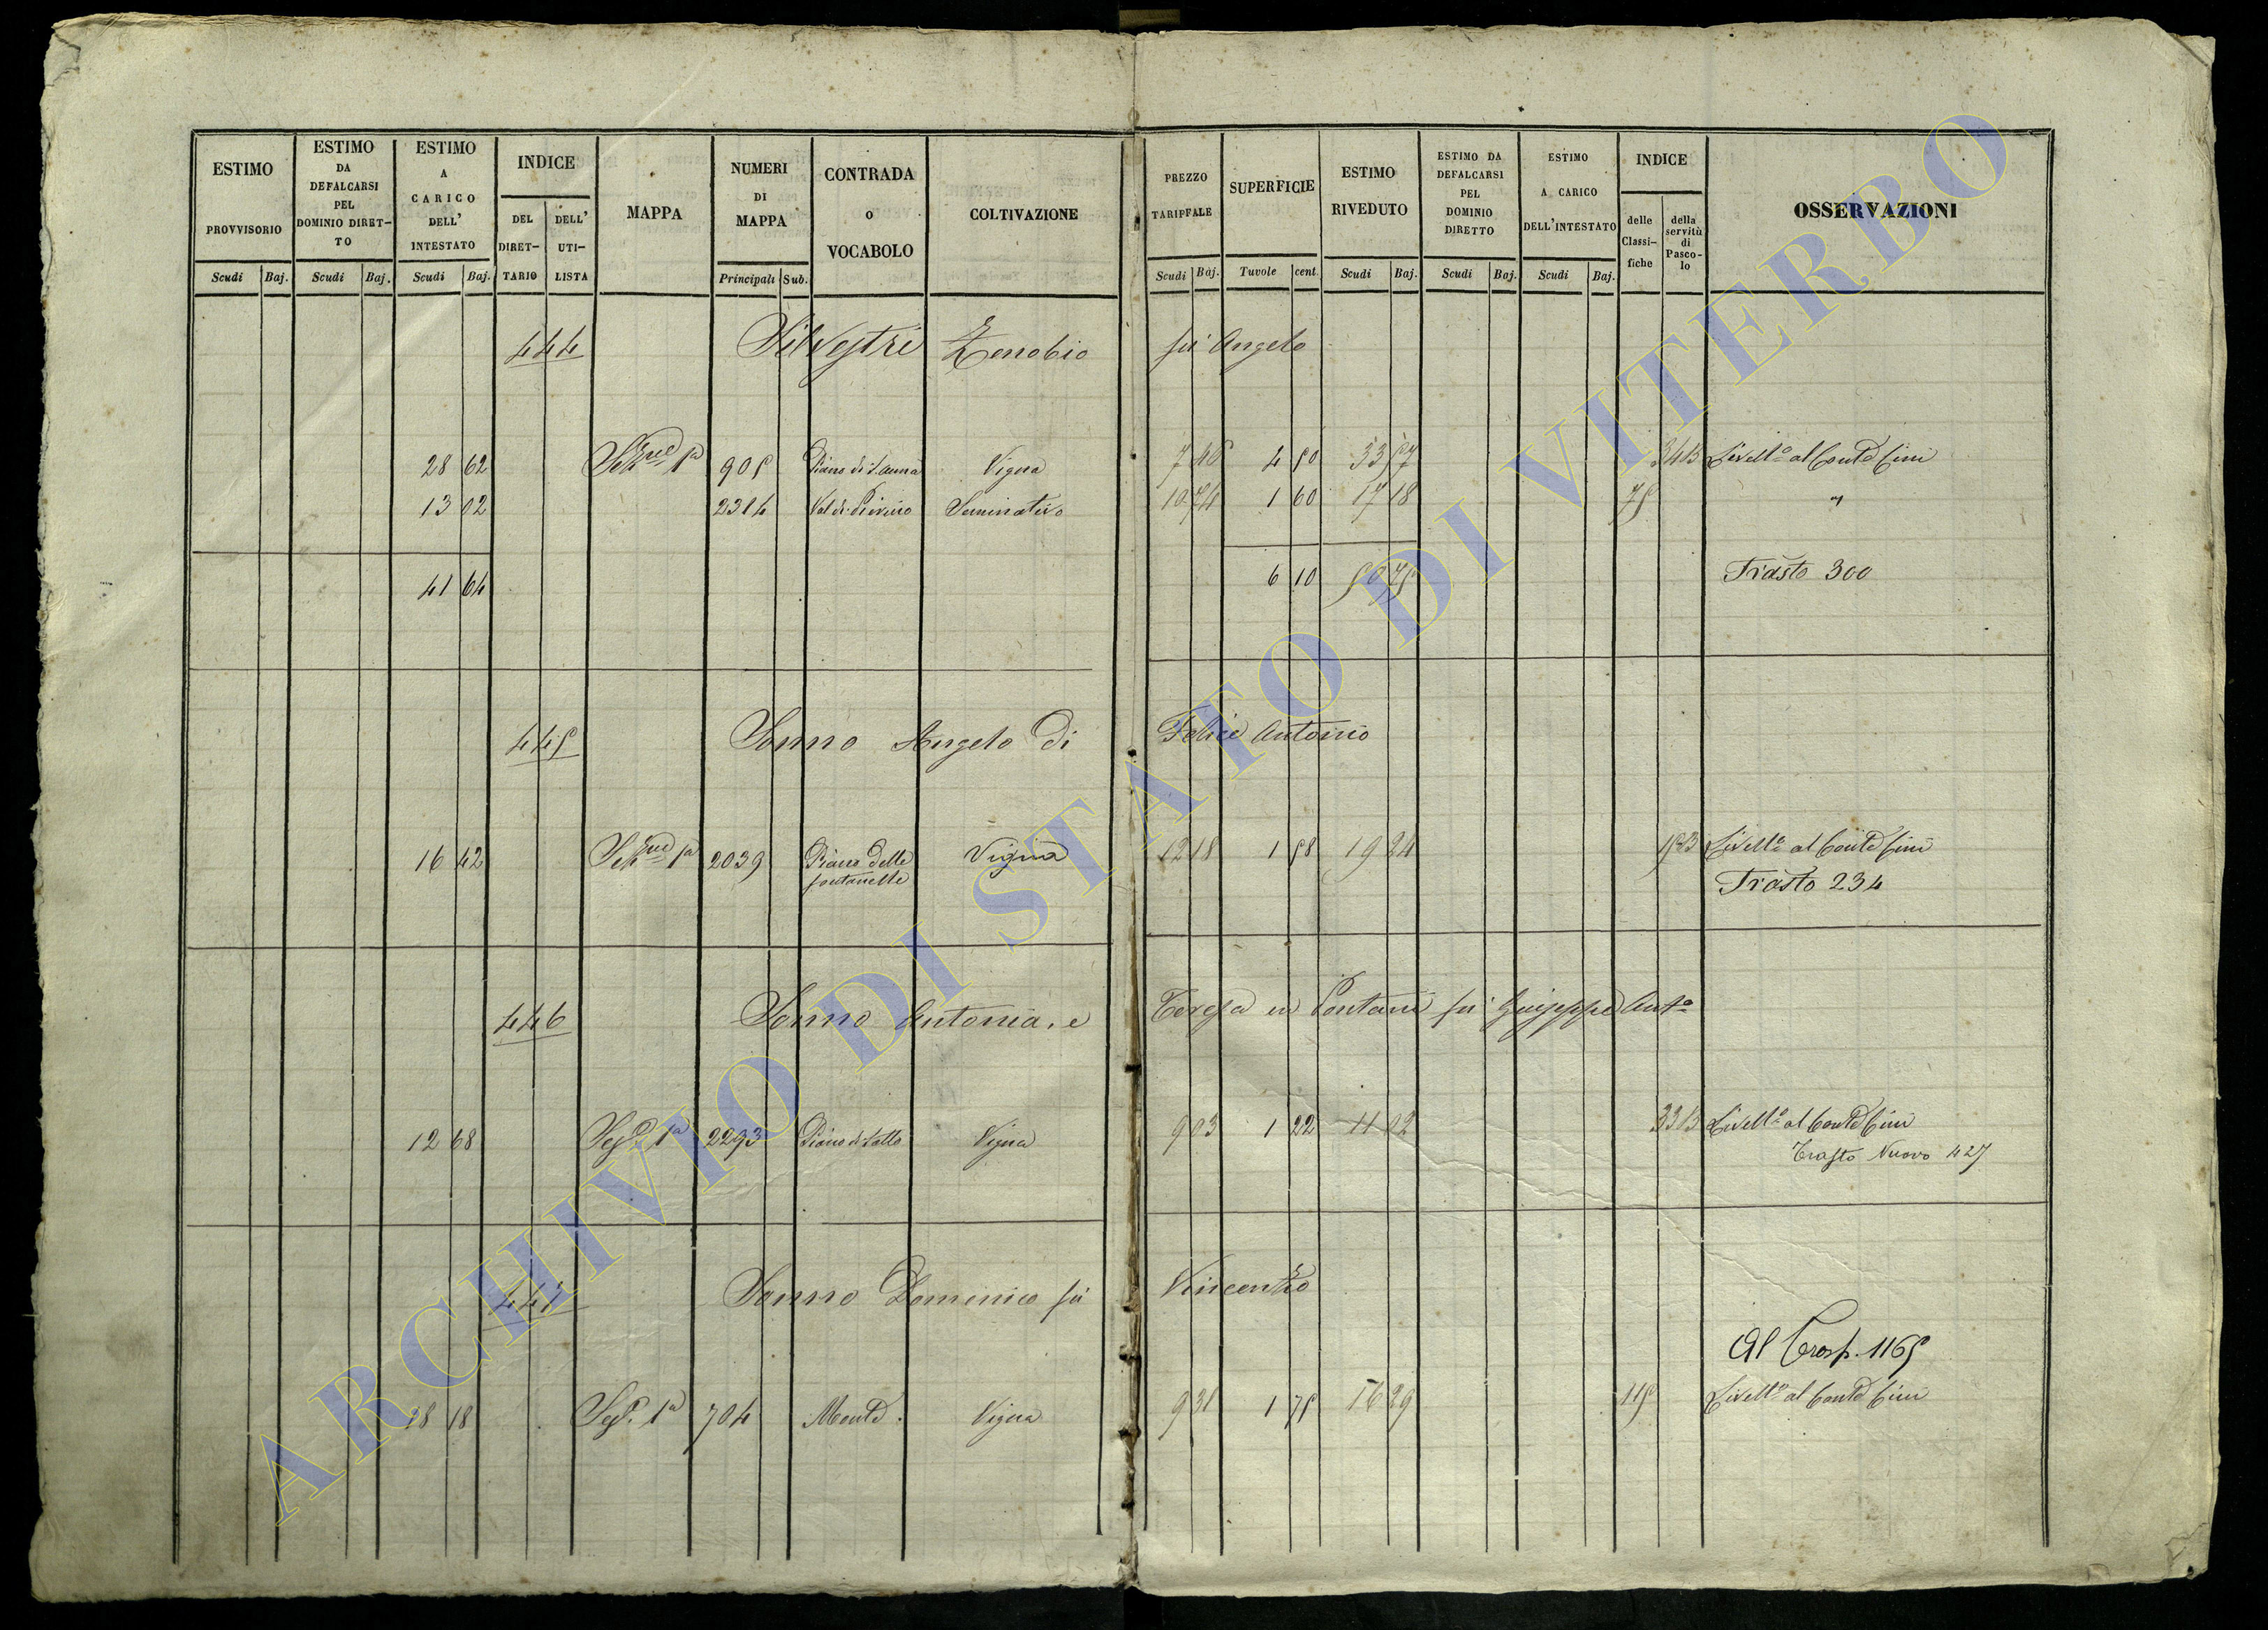 ESTIMO PROVVISORIO Scudi Baj.
ESTIMO DA DEFALCARSI PEL DOMINIO DIRET-TO Scudi Baj.
ESTIMO A CARICO DELL' INTESTATO Scudi Baj.
INDICE DEL DIRET-TARIO DELL' UTI-LISTA
MAPPA
NUMERI DI MAPPA Principali Sub.
CONTRADA o VOCABOLO
COLTIVAZIONE
PREZZO TARIFFALE Scudi Baj.
SUPERFICIE Tavole cent.
ESTIMO RIVEDUTO Scudi Baj.
ESTIMO DA DEFALCARSI PEL DOMINIO DIRETTO Scudi Baj.
ESTIMO A CARICO DELL'INTESTATO Scudi Baj.
INDICE delle Classi-fiche della servitù di Pasco-lo
OSSERVAZIONI
444 Silvestri Zenobio fu Angelo
28 62 1a 905 Piano di S. Anna Vigna 7 46 4 50 33 57 Livello al Conte Cini
13 02 2314 Val di Seminativo 10 74 1 60 17 18 75 "
41 64 6 10 50 75 Trasto 300
445 Sonno Angelo di Felice Antonio
16 42 1a 2039 Piano delle fontanelle Vigna 12 18 1 58 19 24 Livello al Conte Cini
Trasto 234
446 Sonno Antonia, e Teresa in Pontani fu Giuseppe Anto
12 68 1a 2293 Vigna 9 03 1 22 11 02 Livello al Conte Cini
Trasto Nuovo 427
447 Sonno Domenico fu Vincenzo
Al Trasp. 1165
28 18 1a 704 Monte Vigna 9 31 1 75 16 29 115 Livello al Conte Cini
ARCHIVIO DI STATO DI VITERBO